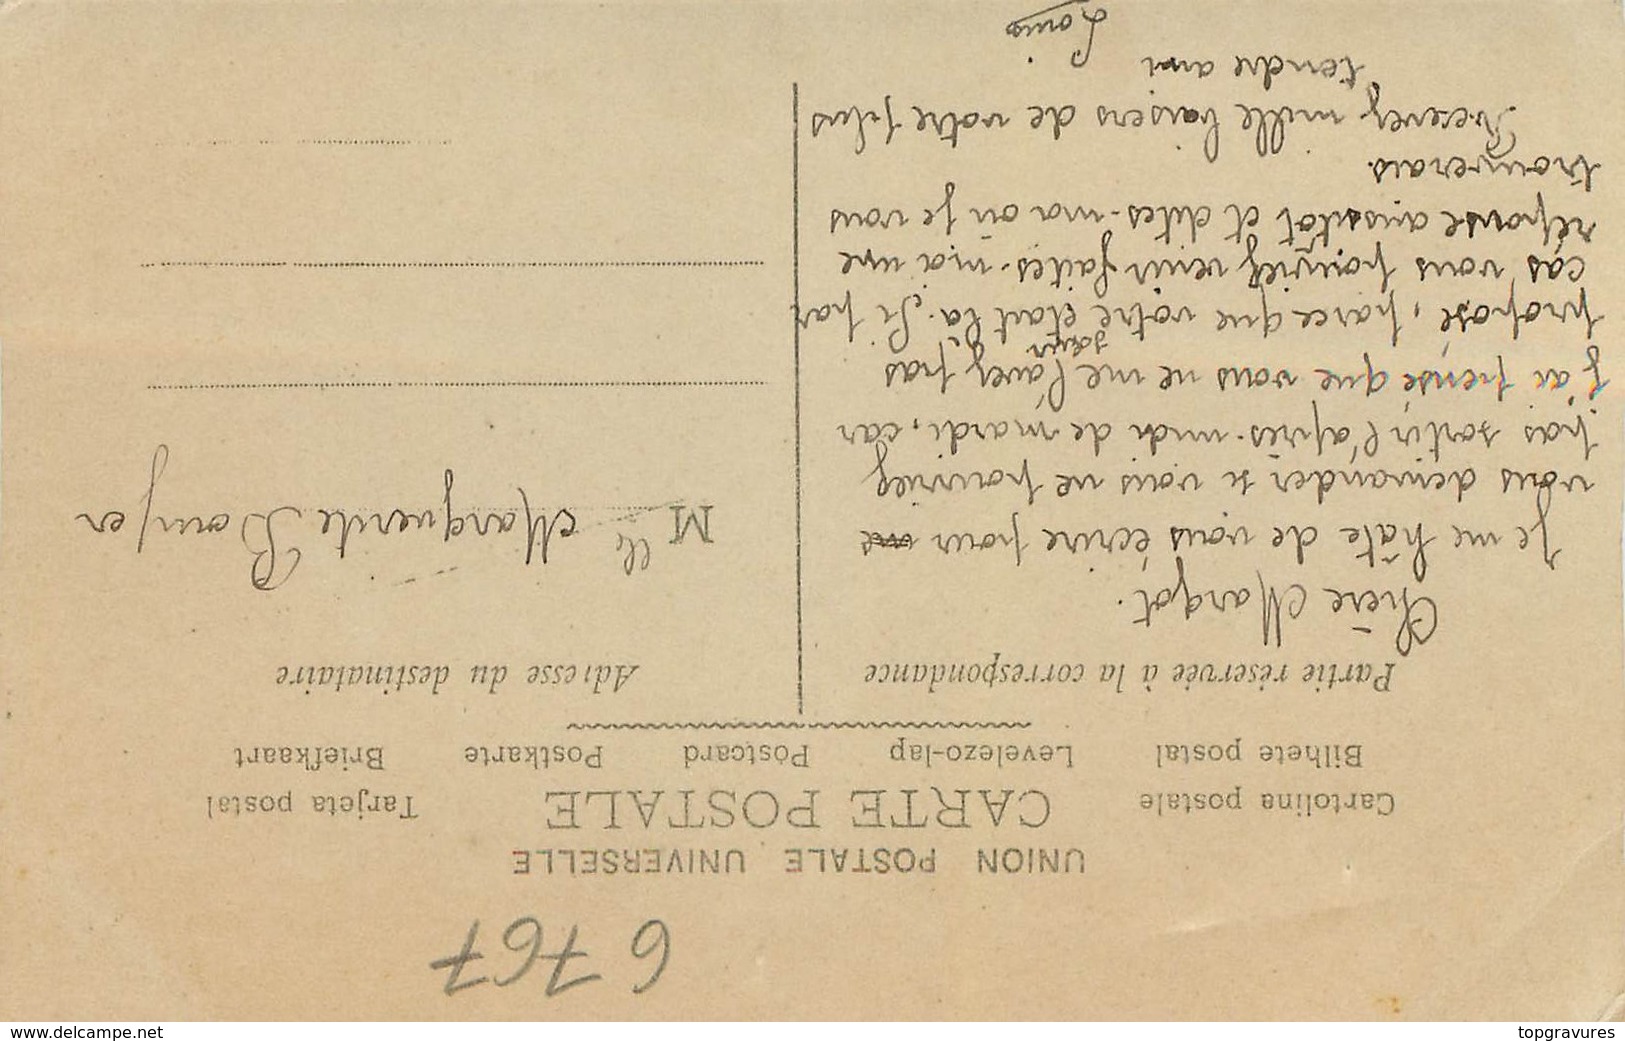 6 767
UNION POSTALE UNIVERSELLE
CARTE POSTALE
Cartolina postale
Tarjeta postal
Bilhete postal
Levelezo-lap
Postcard
Postkarte
Briefkaart
Partie réservée à la correspondance
Adresse du destinataire
Chère Margot.
Je me hâte de vous écrire pour me
vous demander si vous ne pourriez
pas sortir l'après-midi de mardi, car
j'ai pensé que vous ne me l'avez pas
proposé, parce que votre sœur étant là. Si par
cas vous pouviez venir faites-moi une
réponse aussitôt et dites-moi où je vous
trouverais.
Recevez mille baisers de votre plus
tendre ami
Louis
Mlle Marguerite
www.delcampe.net
topgravures